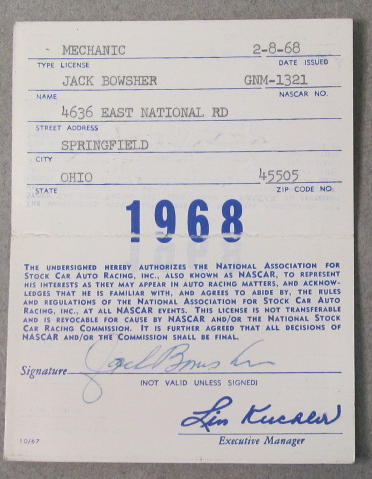 MECHANIC 2-8-68
TYPE LICENSE DATE ISSUED
JACK BOWSHER GNM-1321
NAME NASCAR NO.
4636 EAST NATIONAL RD
STREET ADDRESS
SPRINGFIELD
CITY
OHIO 45505
STATE ZIP CODE NO.
1968
THE UNDERSIGNED HEREBY AUTHORIZES THE NATIONAL ASSOCIATION FOR
STOCK CAR AUTO RACING, INC., ALSO KNOWN AS NASCAR, TO REPRESENT
HIS INTERESTS AS THEY MAY APPEAR IN AUTO RACING MATTERS, AND ACKNOW-
LEDGES THAT HE IS FAMILIAR WITH, AND AGREES TO ABIDE BY, THE RULES
AND REGULATIONS OF THE NATIONAL ASSOCIATION FOR STOCK CAR AUTO
RACING, INC., AT ALL NASCAR EVENTS. THIS LICENSE IS NOT TRANSFERABLE
AND IS REVOCABLE FOR CAUSE BY NASCAR AND/OR THE NATIONAL STOCK
CAR RACING COMMISSION. IT IS FURTHER AGREED THAT ALL DECISIONS OF
NASCAR AND/OR THE COMMISSION SHALL BE FINAL.
Signature Jack Bowsher
(NOT VALID UNLESS SIGNED)
Lin Kuchler
10/67 Executive Manager